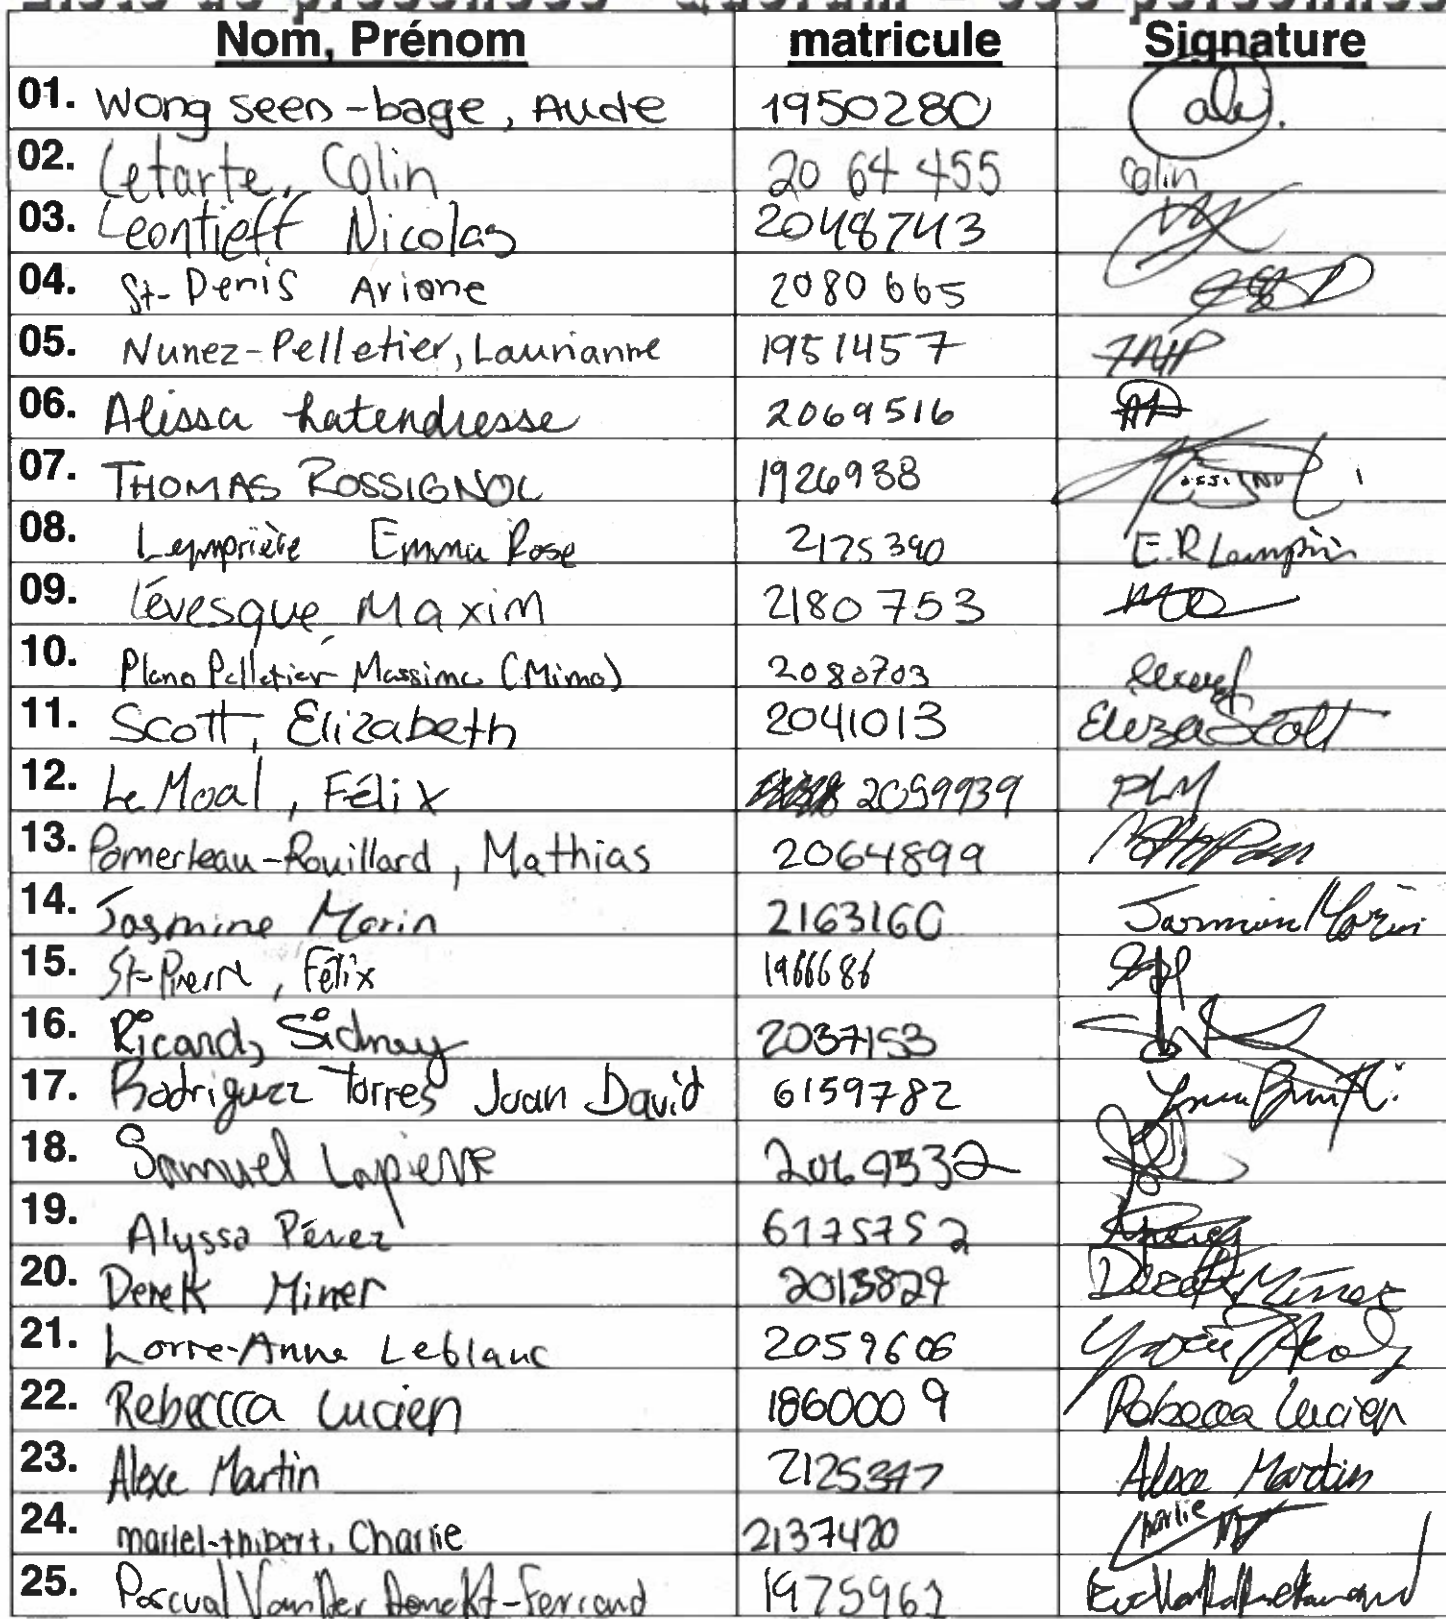 Liste de présences - Quorum = 350 personnes
Nom, Prénom matricule Signature
01. Wong seen-bage, Aude 1950280
02. Letarte, Colin 20 64 455 Colin
03. Leontieff Nicolas 2048743
04. St-Denis Ariane 2080665
05. Nunez-Pelletier, Laurianne 1951457
06. Alissa Latendresse 2069516
07. THOMAS ROSSIGNOL 1926938
08. Lemprière Emma Rose 2175390 E.R Lempriè
09. Lévesque Maxim 2180753
10. Plano Pelletier Massimo (Mimo) 2080703
11. Scott, Elizabeth 2041013 Eliza Scott
12. Le Moal, Félix 2059939 FLM
13. Pomerleau-Rouillard, Mathias 2064899
14. Jasmine Morin 2163160 Jasmine Morin
15. St-Pierre, Félix 1966686
16. Ricard, Sidney 2037153
17. Rodriguez Torres Juan David 6159782
18. Samuel Lapierre 2069532
19. Alyssa Pérez 6175752
20. Derek Miner 2013829 Derek Miner
21. Lorre-Anne Leblanc 2059606
22. Rebecca Lucien 1860009 Rebecca Lucien
23. Alexe Martin 2125347 Alexe Martin
24. martel-thibert, Charlie 2137420 Charlie
25. Pascual Van Der Donckt-Ferrand 1975961